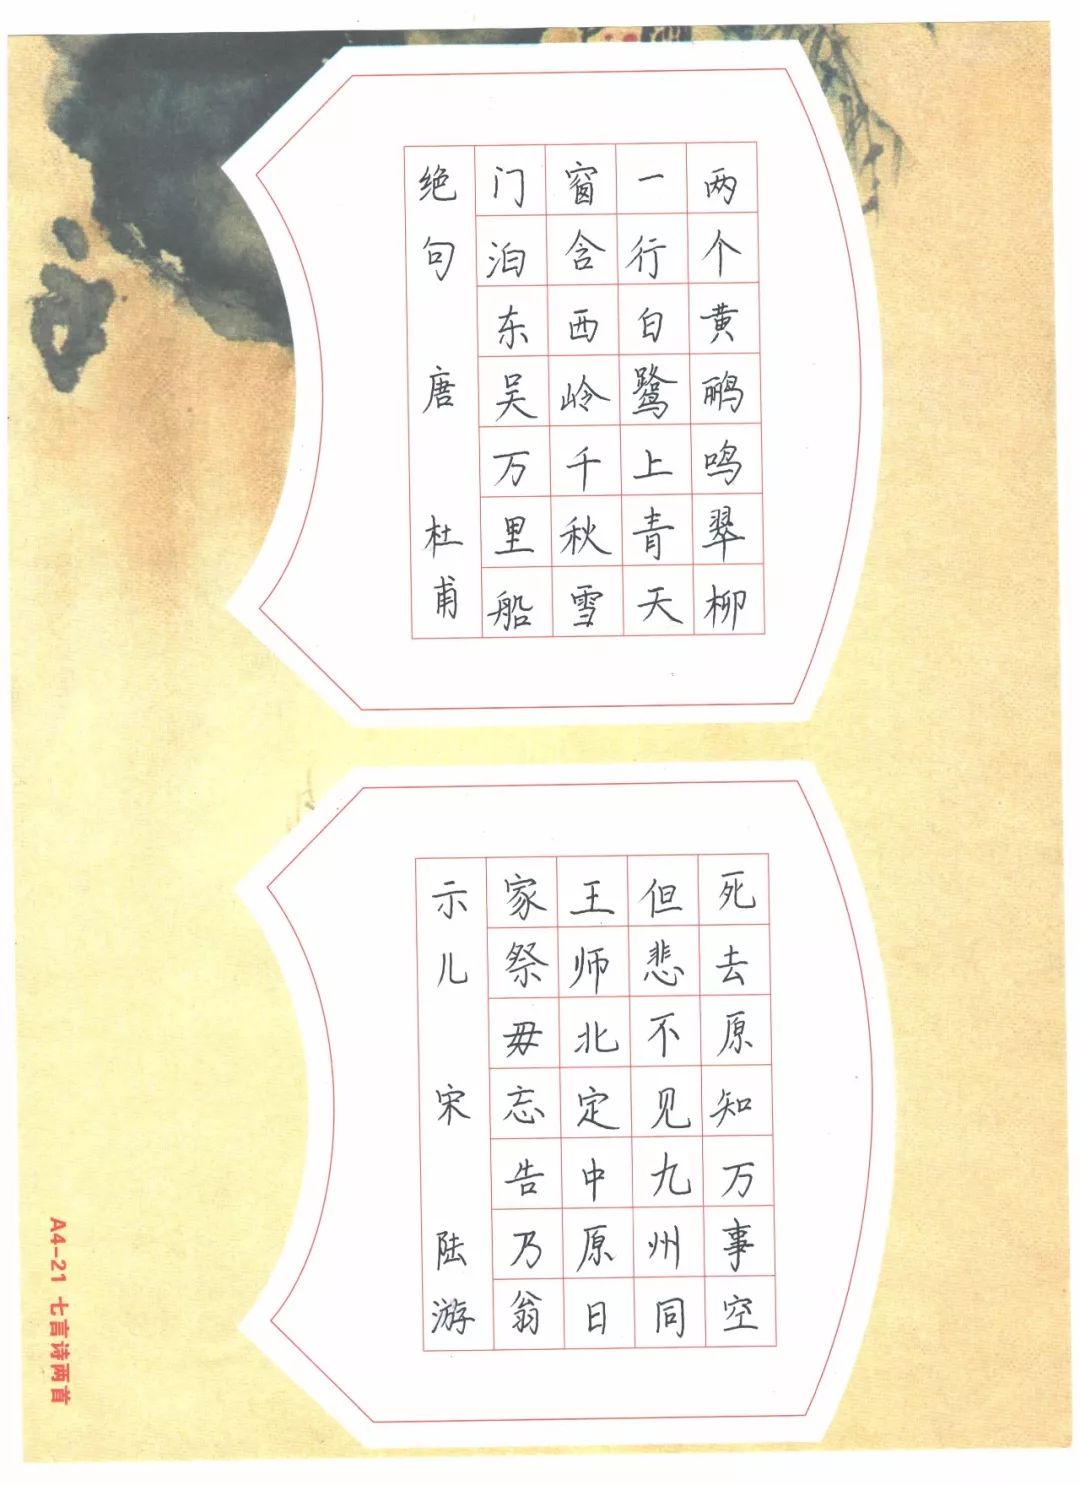 两个黄鹂鸣翠柳
一行白鹭上青天
窗含西岭千秋雪
门泊东吴万里船
绝句 唐 杜甫
死去原知万事空
但悲不见九州同
王师北定中原日
家祭毋忘告乃翁
示儿 宋 陆游
A4-21 七言诗两首